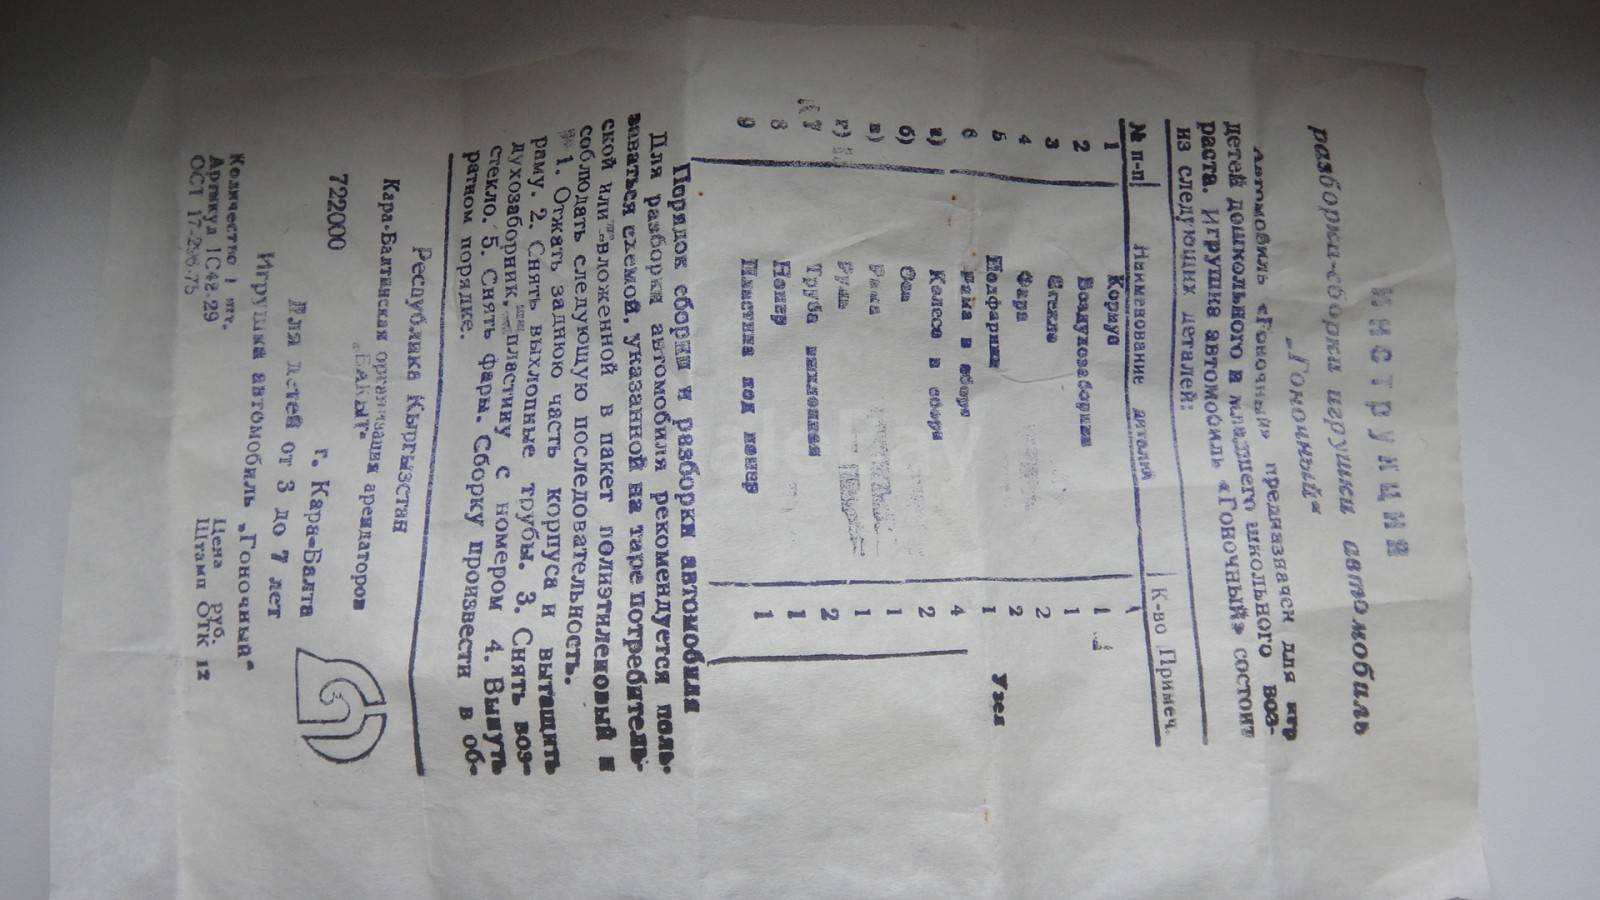 ИНСТРУКЦИЯ
разборка-сборки игрушки автомобиль
„Гоночный“
Автомобиль «Гоночный» предназначен для игр
детей дошкольного и младшего школьного воз-
раста. Игрушка автомобиль «Гоночный» состоит
из следующих деталей:
№ п-п Наименование деталей К-во Примеч.
1 Корпус 1
2 Воздухозаборник 1
3 Стекло 2
4 Фара 2
5 Подфарник 1 Узел
6 Рама в сборе 4
а) Колесо в сборе 2
б) Оси 1
в) Рама 1
г) Руль 2
7 Труба выхлопная 1
8 Номер 1
9 Пластина под номер
Порядок сборки и разборки автомобиля
Для разборки автомобиля рекомендуется поль-
зоваться схемой, указанной на таре потребитель-
ской или вложенной в пакет полиэтиленовый и
соблюдать следующую последовательность.
1. Отжать заднюю часть корпуса и вытащить
раму. 2. Снять выхлопные трубы. 3. Снять воз-
духозаборник, пластину с номером 4. Вынуть
стекло. 5. Снять фары. Сборку произвести в об-
ратном порядке.
Республика Кыргызстан
Кара-Балтинская организация арендаторов
„БАКЫТ“
722000 г. Кара-Балта
Для детей от 3 до 7 лет
Игрушка автомобиль „Гоночный“
Количество 1 шт. Цена руб.
Артикул 1С48-29 Штамп ОТК 12
ОСТ 17-